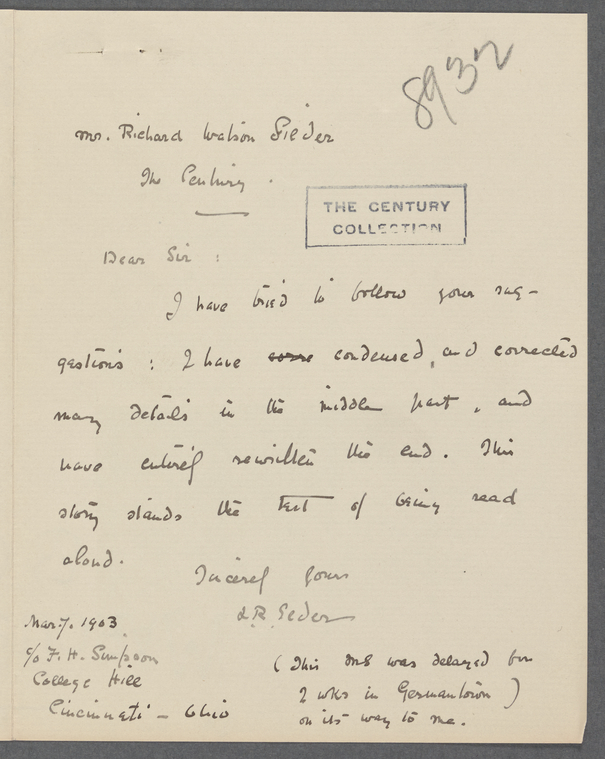 8932
Mr. Richard Watson Gilder
The Century.
THE CENTURY
COLLECTION
Dear Sir :
I have tried to follow your sug-
gestions : I have condensed, and corrected
many details in the middle part, and
have entirely rewritten the end. This
story stands the test of being read
aloud.
Sincerely yours
Mar. 7. 1903
c/o F. H. Simpson
College Hill
Cincinnati - Ohio
(This MS was delayed for
2 wks in Germantown)
on its way to me.